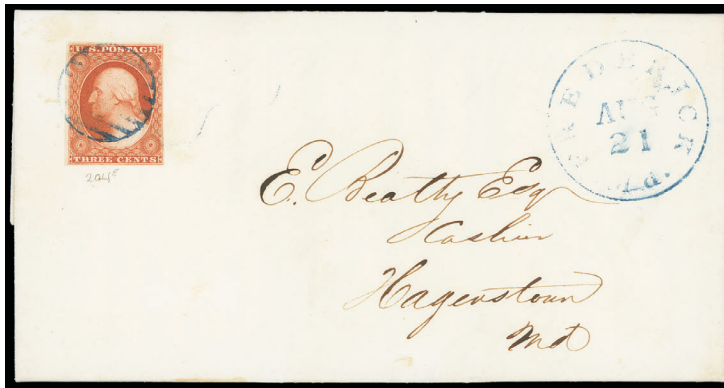 U.S. POSTAGE
THREE CENTS
FREDERICK
AUG
21
Md.
E. Beatty Esq
Cashier
Hagerstown
Md